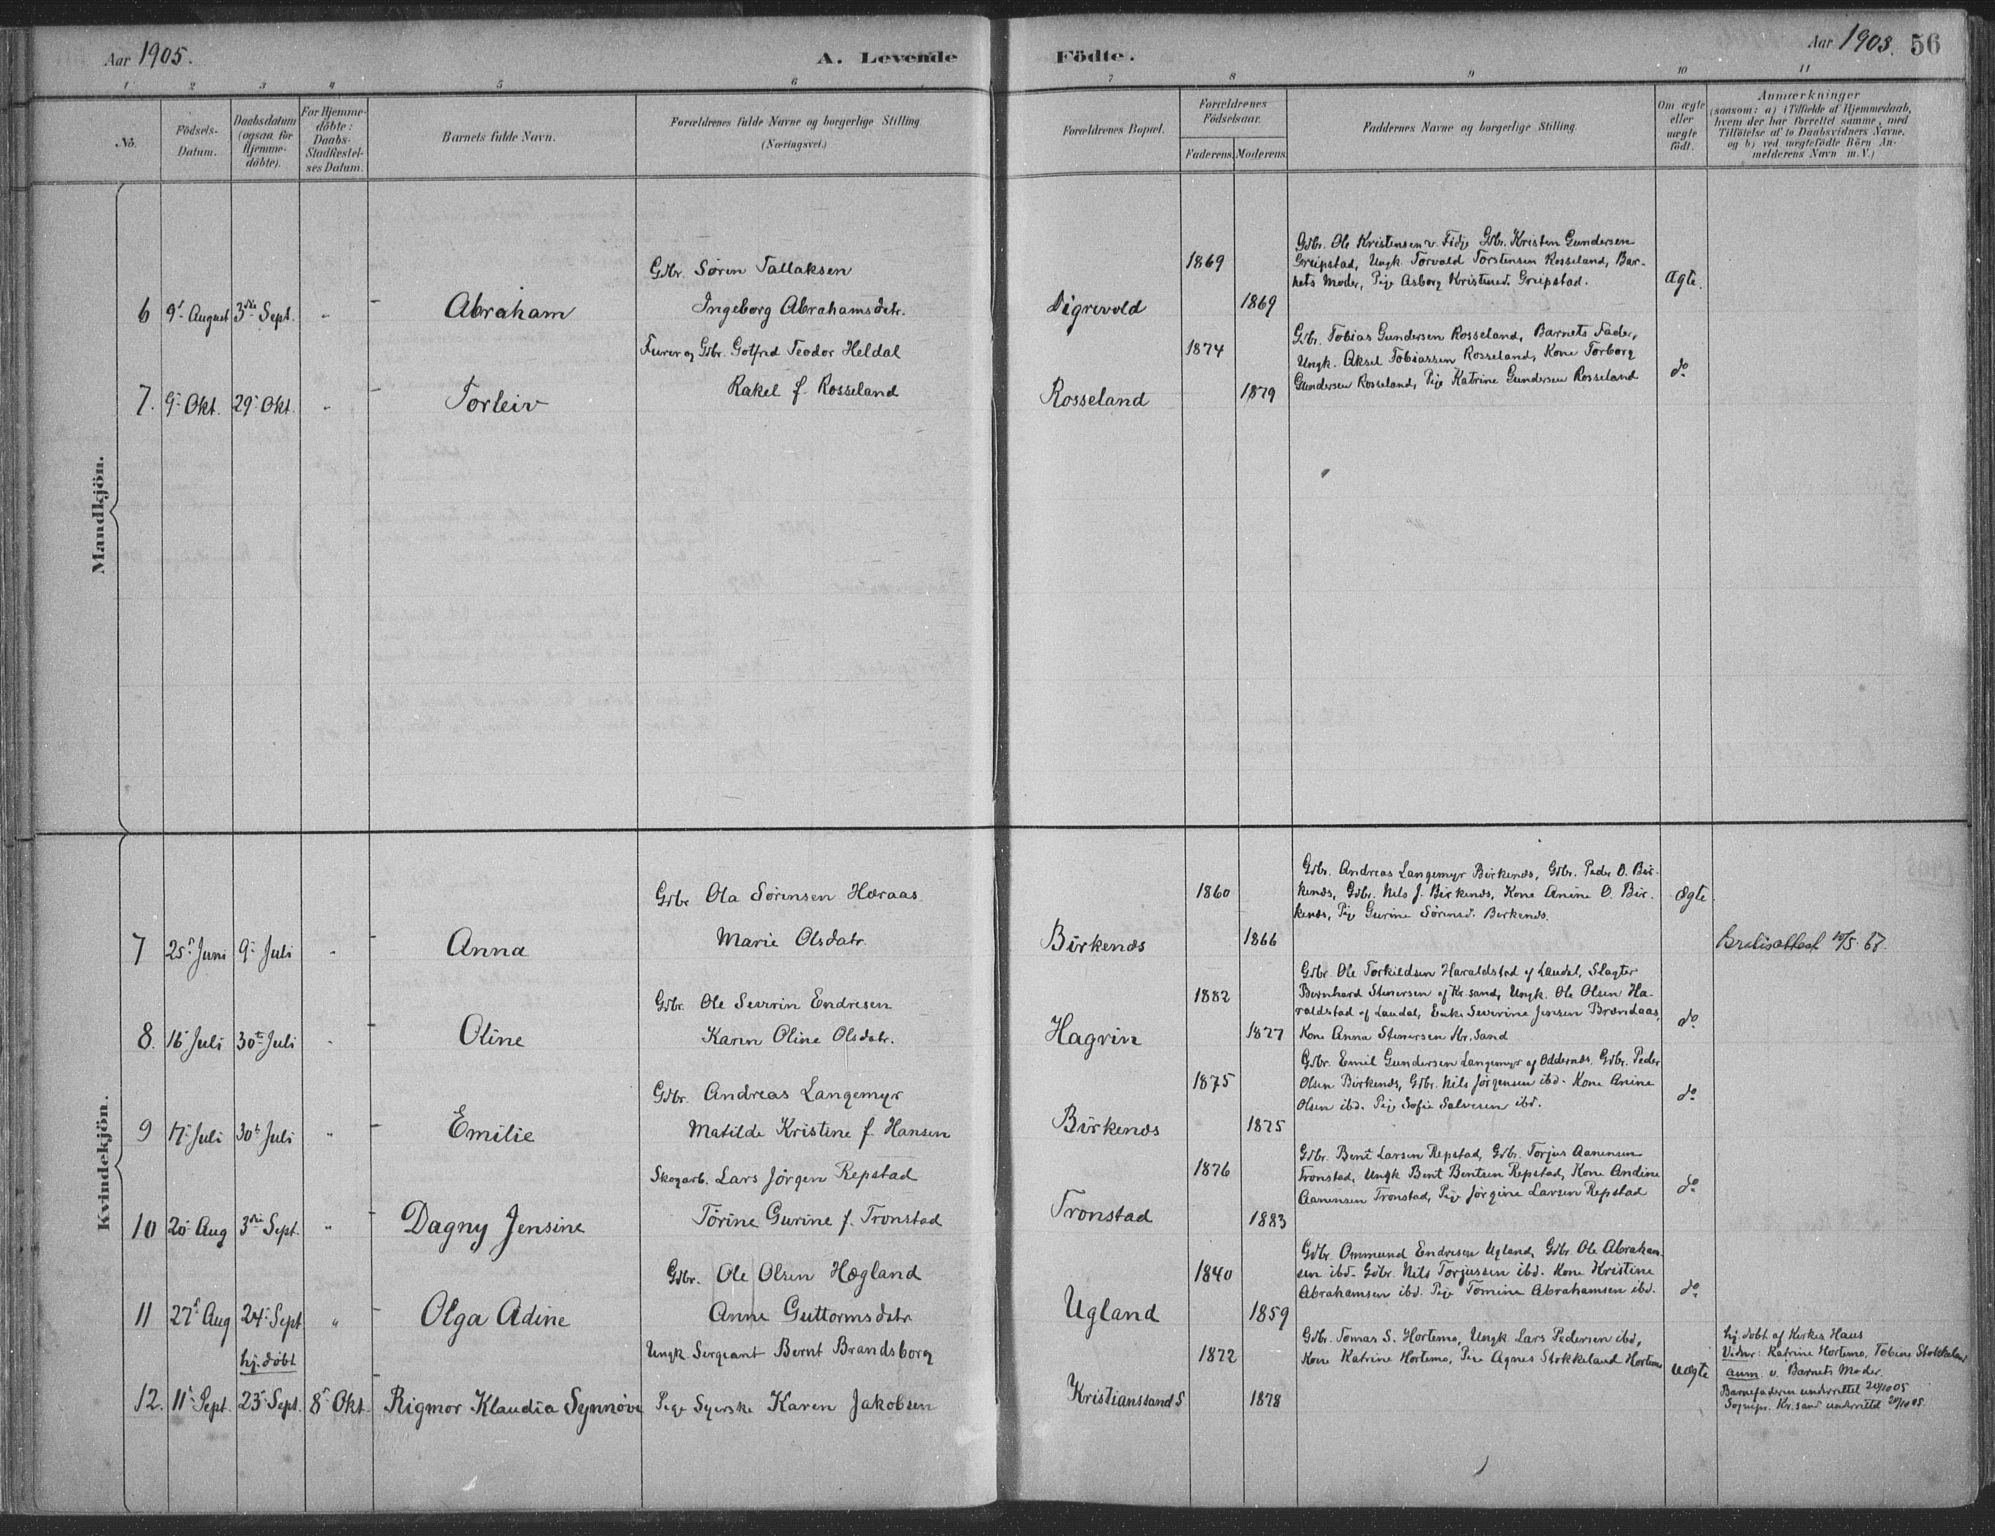 Aar 1905. A. Levende Födte. Aar 1905. 56
1 2 3 4 5 6 7 8 9 10 11
No.
Födsels-
Datum.
Daabsdatum
(ogsaa for
Hjemme-
döbte).
For Hjemme-
döbte:
Daabs-
Stadfæstel-
ses Datum.
Barnets fulde Navn.
Forældrenes fulde Navne og borgerlige Stilling
(Næringsvei.)
Forældrenes Bopæl.
Forældrenes
Födselsaar.
Faderens. Moderens.
Faddernes Navne og borgerlige Stilling.
Om ægte
eller
uægte
födt.
Anmærkninger
(saasom: a) i Tilfælde af Hjemmedaab,
hvem der har forrettet samme, med
Tilföielse af to Daabsvidners Navne,
og b) ved uægtefödte Börn An-
melderens Navn m. V.)
Mandkjön.
6 9de August 3die Sept. „ Abraham
Gdbr. Søren Tallaksen
Ingeborg Abrahamsdatr.
Digrevold
1869
1869
Gdbr. Ole Kristensen v. Fidje Gdbr. Kristen Gundersen
Greipstad, Ungk. Torvald Torstensen Rosseland, Bar-
nets Moder, Pige Asborg Kristensd. Greipstad.
Ægte.
7. 9de Okt. 29de Okt. „ Torleiv
Furer og Gdbr. Gotfred Teodor Heldal
Rakel f. Rosseland
Rosseland
1874
1879
Gdbr. Tobias Gundersen Rosseland, Barnets Fader,
Ungk. Aksel Tobiassen Rosseland, Kone Torborg
Gundersen Rosseland, Pige Katrine Gundersen Rosseland
do
Kvindekjön.
7 25de Juni 9de Juli „ Anna
Gdbr Ola Sørensen Høraas
Marie Olsdatr.
Birkenæs
1860
1866
Gdbr. Andreas Langemyr Birkenæs, Gdbr. Peder O. Bir-
kenæs, Gdbr. Nils J. Birkenæs, Kone Anine O. Bir-
kenæs, Pige Gurine Sørensd. Birkenæs.
Ægte
10/5. 67.
8. 16 Juli 30te Juli „ Oline
Gdbr. Ole Severin Endresen
Karen Oline Olsdatr.
Hagrin
1882
1877
Gdbr. Ole Torkildsen Haraldstad af Laudal, Slagter
Bernhard Stenersen af Kr.sand, Ungk. Ole Olsen Ha-
raldstad af Laudal, Enke Severine Jensen Brændaas,
Kone Anna Stenersen Kr.sand
do
9 17de Juli 30te Juli „ Emilie
Gdbr. Andreas Langemyr
Matilde Kristine f. Hansen
Birkenæs
1875
1875
Gdbr. Emil Gundersen Langemyr af Oddernæs, Gdbr. Peder
Olsen Birkenæs, Gdbr. Nils Jørgensen ibd. Kone Anine
Olsen ibd. Pige Sofie Salvesen ibd.
do
10 20de Aug 3die Sept. „ Dagny Jensine
Skogarb. Lars Jörgen Repstad
Torine Gurine f. Tronstad
Tronstad
1876
1883
Gdbr. Bent Larsen Repstad, Gdbr. Torjus Aanensen
Tronstad, Ungk Bent Bentsen Repstad, Kone Andine
Aanensen Tronstad, Pige Jørgine Larsen Repstad
do
11 27de Aug 24de Sept „ Olga Adine
Gdbr. Ole Olsen Hægland
Anne Guttormsdatr
Ugland
1840
1859
Gdbr. Ommund Endresen Ugland, Gdbr. Ole Abraham-
sen ibd. Gdbr. Nils Torjussen ibd. Kone Kristine
Abrahamsen ibd. Pige Tomine Abrahamsen ibd.
do
12. 11te Sept.
hj. döbt
23de Sept. 8de Okt. Rigmor Klaudia Synnöve
Ungk. Sergeant Bernt Brandsborg
Pige Syerske Karen Jakobsen
Kristianssand S
1872
1878
Gdbr. Tomas S. Hortemo, Ungk Lars Pedersen ibd,
Kone Katrine Hortemo, Pige Agnes Stokkeland Hortemo
uægte
hj. døbt af Kirkes. Haus
Vidner: Katrine Hortemo, Tobine Stokkeland
anm. v. Barnets Moder.
Barnefaderen underrettet 20/10 05
Sognepr. Kr.sand underrettet 20/10 05.